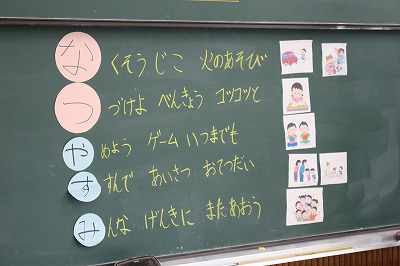 なくそう じこ 火のあそび
つづけよ べんきょう コツコツと
やめよう ゲーム いつまでも
すすんで あいさつ おてつだい
みんな げんきに またあおう